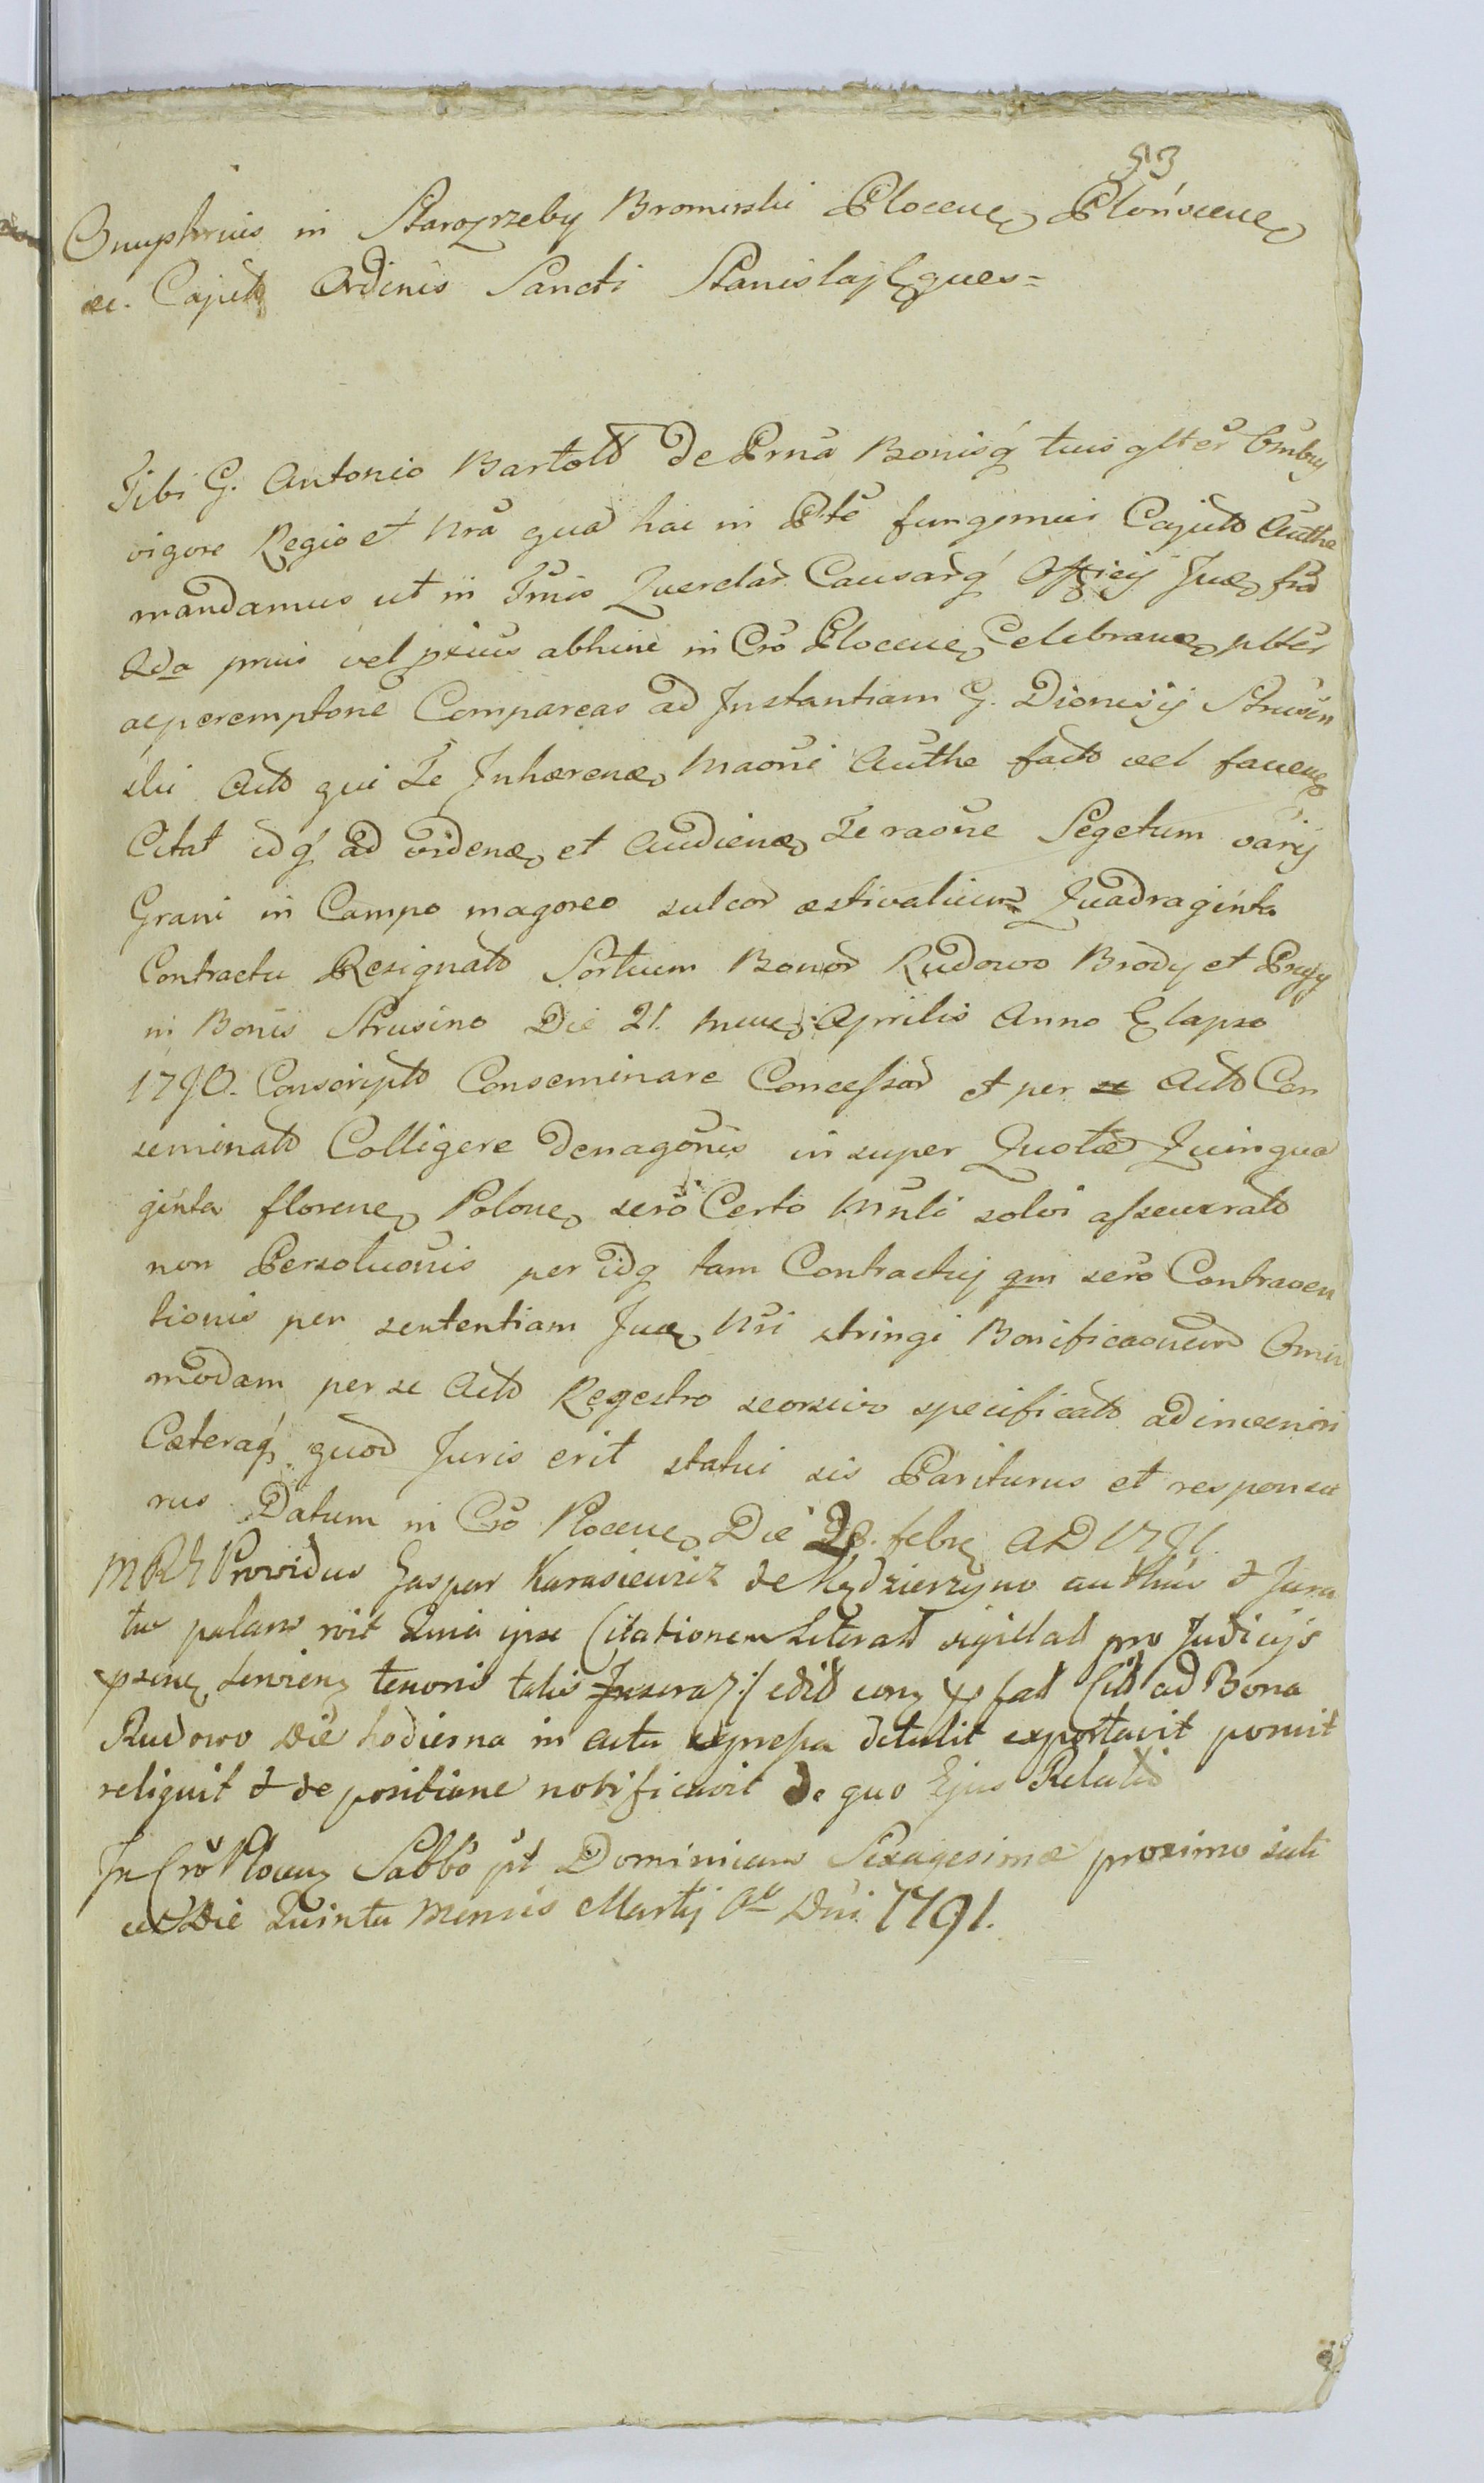 513
Onuphrius in Starozrzeby Bromirski Plocen Plónscen
ac Capit Ordinis Sancti Stanislaj Eques=
Tibi G. Antonio Bartold De Prna Bonisq tuis glter Omby
vigore Regio et Nra qua hac in Pte fungimur Capit Authe
mandamus ut in Tmis Querelar Causarq Officij Jud fnd
Qda prius vel pxius abhinc in Cro Plocen Celebran plter
ac peremptorie Compareas ad Instantiam G. Dionisij Strusin
ski Act qui Te Inhaeren Maoni Authe fact vel facien
Citat idq ad viden et Audien Te raone Segetum varij
Grani in Campo magoreo sulcor aestivalium Quadraginta
Contractu Resignat Sortium Bonor Rudowo Brody et
in Bonis Strusino Die 21. Mens Aprilis Anno Elapso
1790. Conscript Conseminare Concessar et per se Act Con
seminat Colligere denagonis in super Quota Quinqua
ginta floren Polon sero Certo Mnli solvi assecurat
non Persoluonis per idq tam Contractuj qm sero Contraven
tionis per sententiam Jud Nri stringi Bonificaonem Omni
modam per se Act Regestro seorsivo specificat adinveniri
Caeteraq quod Juris erit statui sis Pariturus et responsu
rus Datum in Cro Plocen Die 28. febr AD 1791.
MRE Providus Gaspar Karasiewicz de Kędzierzyno authus & Jura
tus palam rvit Quia ipse Citationem Literat sigillat pro Judicijs
pxen servien tenoris talis Insera:/ edit eonz p fat Cit ad Bona
Rudowo Die hodierna in actu expressa detulit exportavit ponuit
reliquit & de positione notificavit de quo Ejus Relatio
In Cro Plocen Sabbo pt Dominicam Sexagesimae proximo sub
ust Die Quinta Mensis Martij Ao Dni 1791.